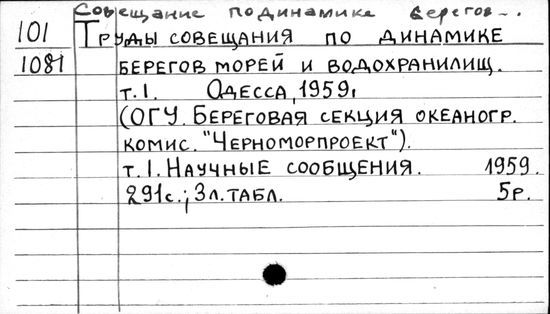 Совещание по динамике берегов...
101 Труды совещания по динамике
1081 берегов морей и водохранилищ.
т.1. Одесса, 1959,
(ОГУ. Береговая секция океаногр.
комис. "Черноморпроект").
т.1. Научные сообщения. 1959.
291с.; 3л.табл. 5р.